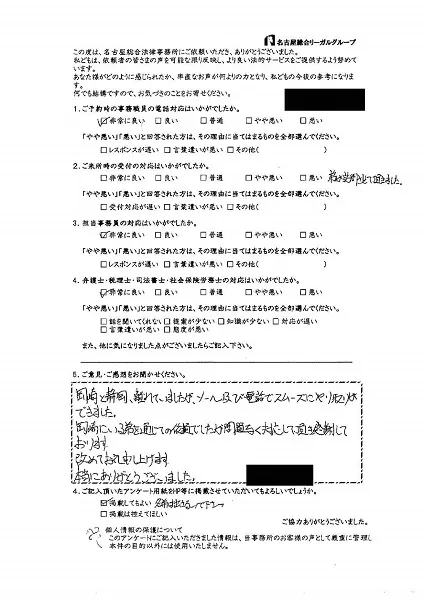 名古屋総合リーガルグループ
この度は、名古屋総合法律事務所にご依頼いただき、ありがとうございました。
私どもは、依頼者の皆さまの声を可能な限り反映し、より良い法的サービスをご提供するよう努めて
います。
あなた様がどのように感じられたか、率直なお声が何よりの力となり、私どもの今後の参考になりま
す。
何でも結構ですので、お気づきのことをお寄せください。
1．ご予約時の事務職員の電話対応はいかがでしたか。
☑非常に良い □良い □普通 □やや悪い □悪い
「やや悪い」「悪い」と回答された方は、その理由に当てはまるものを全部選んでください。
□レスポンスが遅い □言葉遣いが悪い □その他( )
2．ご来所時の受付の対応はいかがでしたか。
□非常に良い □良い □普通 □やや悪い □悪い
「やや悪い」「悪い」と回答された方は、その理由に当てはまるものを全部選んでください。
□受付対応が遅い □言葉遣いが悪い □その他( )
3．担当事務員の対応はいかがでしたか。
☑非常に良い □良い □普通 □やや悪い □悪い
「やや悪い」「悪い」と回答された方は、その理由に当てはまるものを全部選んでください。
□レスポンスが遅い □言葉遣いが悪い □その他( )
4．弁護士・税理士・司法書士・社会保険労務士の対応はいかがでしたか。
☑非常に良い □良い □普通 □やや悪い □悪い
「やや悪い」「悪い」と回答された方は、その理由に当てはまるものを全部選んでください。
□話を聞いてくれない □提案が少ない □知識が少ない □対応が遅い
□言葉遣いが悪い □態度が悪い
また、他に気になりました点がございましたらご記入下さい。
5．ご意見・ご感想をお聞かせください。
岡崎と静岡、離れていましたが、メール及び電話でスムーズにやり取りが
できました。
岡崎にいる弟を通じての依頼でしたが問題なく対応して頂き感謝して
おります。
改めてお礼申し上げます
本当にありがとうございました。
4．ご記入頂いたアンケート用紙をHP等に掲載させていただいてもよろしいでしょうか。
☑掲載してもよい
□掲載は控えてほしい
ご協力ありがとうございました。
個人情報の保護について
このアンケートにご記入いただきました情報は、当事務所のお客様の声として厳重に管理し
本件の目的以外には使用いたしません。